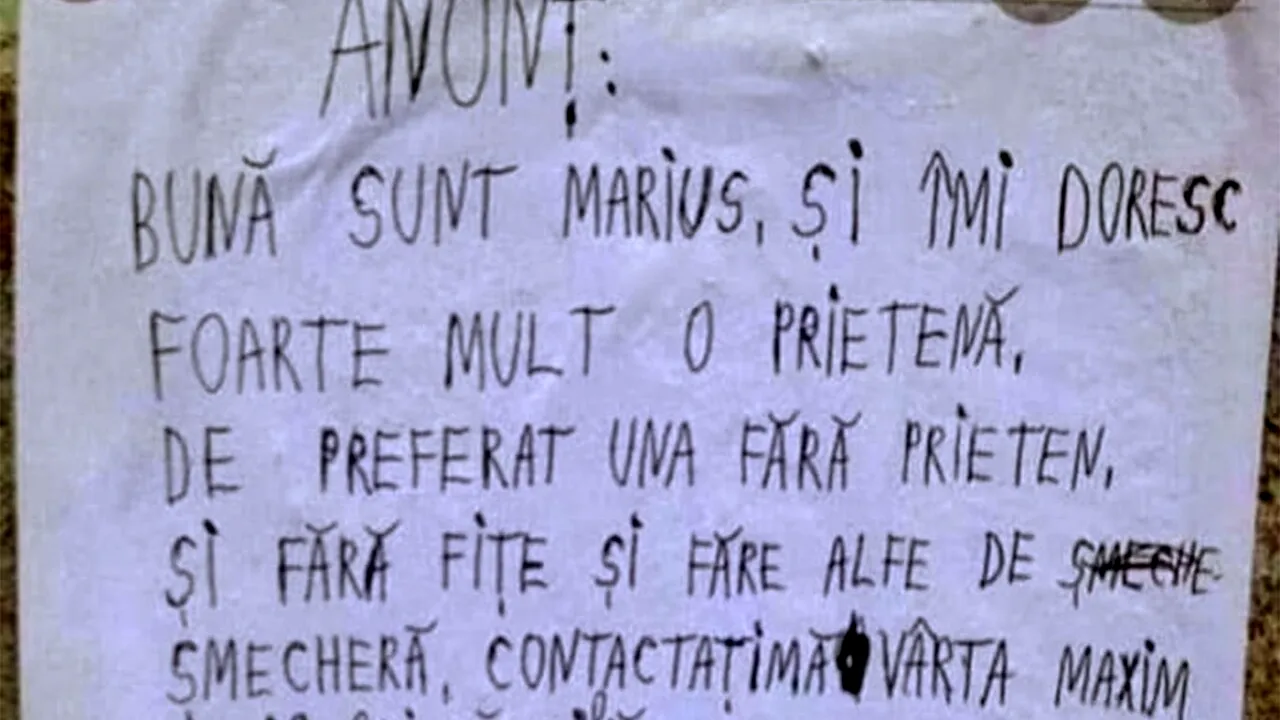 ANUNȚ:
BUNĂ SUNT MARIUS, ȘI ÎMI DORESC
FOARTE MULT O PRIETENĂ,
DE PREFERAT UNA FĂRĂ PRIETEN,
ȘI FĂRĂ FIȚE ȘI FĂRE ALFE DE ȘMECHE-
ȘMECHERĂ, CONTACTAȚIMĂ VÂRTA MAXIM